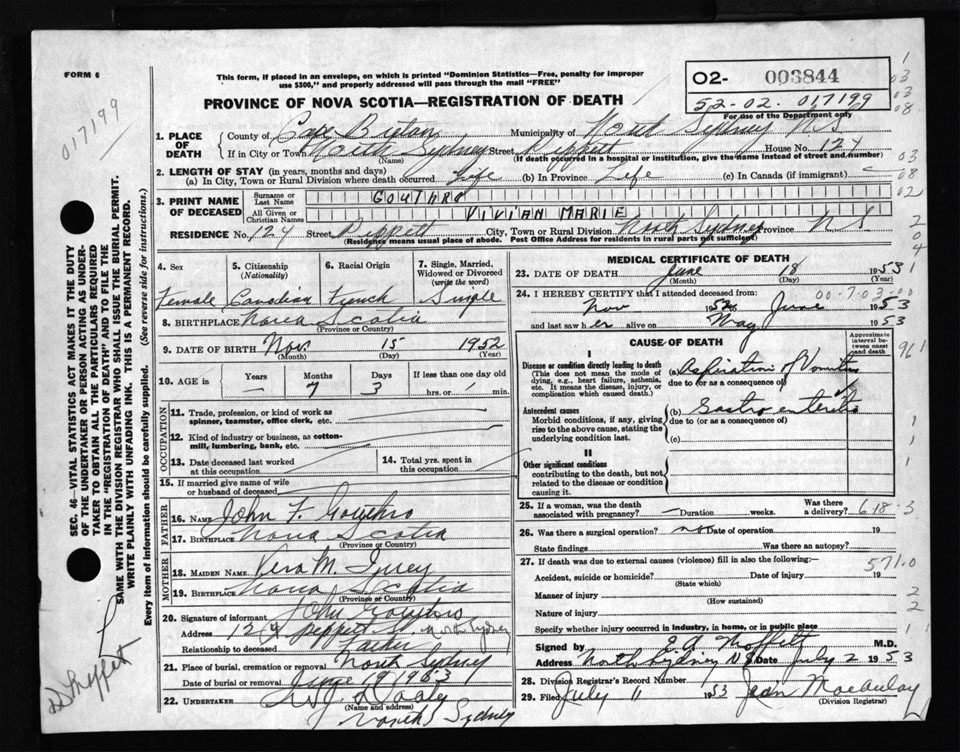 FORM 6
This form, if placed in an envelope, on which is printed "Dominion Statistics—Free, penalty for improper
use $300," and properly addressed will pass through the mail "FREE"
PROVINCE OF NOVA SCOTIA—REGISTRATION OF DEATH
02- 003844
52-02. 017199
For use of the Department only
017199
1. PLACE OF DEATH
County of Cape Breton Municipality of North Sydney NS
If in City or Town North Sydney Street Peppett House No. 124
(Name) (If death occurred in a hospital or institution, give the name instead of street and number)
2. LENGTH OF STAY (in years, months and days)
(a) In City, Town or Rural Division where death occurred Life (b) In Province Life (c) In Canada (if immigrant)
3. PRINT NAME OF DECEASED
Surname or Last Name GOUTHRO
All Given or Christian Names VIVIAN MARIE
RESIDENCE No. 124 Street Peppett City, Town or Rural Division North Sydney Province N S
(Residence means usual place of abode. Post Office Address for residents in rural parts not sufficient)
4. Sex Female
5. Citizenship (Nationality) Canadian
6. Racial Origin French
7. Single, Married, Widowed or Divorced (write the word) Single
8. BIRTHPLACE Nova Scotia
(Province or Country)
9. DATE OF BIRTH Nov. 15 1952
(Month) (Day) (Year)
10. AGE in Years Months 7 Days 3 If less than one day old hrs. or min.
OCCUPATION
11. Trade, profession, or kind of work as spinner, teamster, office clerk, etc.
12. Kind of industry or business, as cotton-mill, lumbering, bank, etc.
13. Date deceased last worked at this occupation
14. Total yrs. spent in this occupation
15. If married give name of wife or husband of deceased
FATHER
16. NAME John F. Gouthro
17. BIRTHPLACE Nova Scotia
(Province or Country)
MOTHER
18. MAIDEN NAME Vera M.
19. BIRTHPLACE Nova Scotia
(Province or Country)
20. Signature of informant John Gouthro
Address 124 Peppett St. North Sydney
Relationship to deceased Father
21. Place of burial, cremation or removal North Sydney
Date of burial or removal June 19 1953
22. UNDERTAKER
(Name and address)
North Sydney
MEDICAL CERTIFICATE OF DEATH
23. DATE OF DEATH June 18 1953
(Month) (Day) (Year)
24. I HEREBY CERTIFY that I attended deceased from: 00-703-00
Nov 1952 to June 1953
and last saw her alive on May 1953
CAUSE OF DEATH
Approximate interval between onset and death
I
Disease or condition directly leading to death
(This does not mean the mode of dying, e.g., heart failure, asthenia, etc. It means the disease, injury, or complication which caused death.)
(a) Aspiration of Vomitus
due to (or as a consequence of)
Antecedent causes
Morbid conditions, if any, giving rise to the above cause, stating the underlying condition last.
(b) Gastro enteritis
due to (or as a consequence of)
(c)
II
Other significant conditions
contributing to the death, but not related to the disease or condition causing it.
25. If a woman, was the death associated with pregnancy? Duration weeks. Was there a delivery? 618.3
26. Was there a surgical operation? no Date of operation 19
State findings Was there an autopsy?
27. If death was due to external causes (violence) fill in also the following:
571.0
Accident, suicide or homicide? Date of injury 19
(State which)
Manner of injury
(How sustained)
Nature of injury
Specify whether injury occurred in industry, in home, or in public place
Signed by Moffett M.D.
Address North Sydney N S Date July 2 1953
28. Division Registrar's Record Number
29. Filed July 11 1953 Jean Macaulay
(Division Registrar)
SEC. 46—VITAL STATISTICS ACT MAKES IT THE DUTY
OF THE UNDERTAKER OR PERSON ACTING AS UNDER-
TAKER TO OBTAIN ALL THE PARTICULARS REQUIRED
IN THE "REGISTRATION OF DEATH" AND TO FILE THE
SAME WITH THE DIVISION REGISTRAR WHO SHALL ISSUE THE BURIAL PERMIT.
WRITE PLAINLY WITH UNFADING INK. THIS IS A PERMANENT RECORD.
Every item of information should be carefully supplied. (See reverse side for instructions.)
1
03
03
08
03
08
02
2
0
4
1
961
1
1
1
3
2
2
1